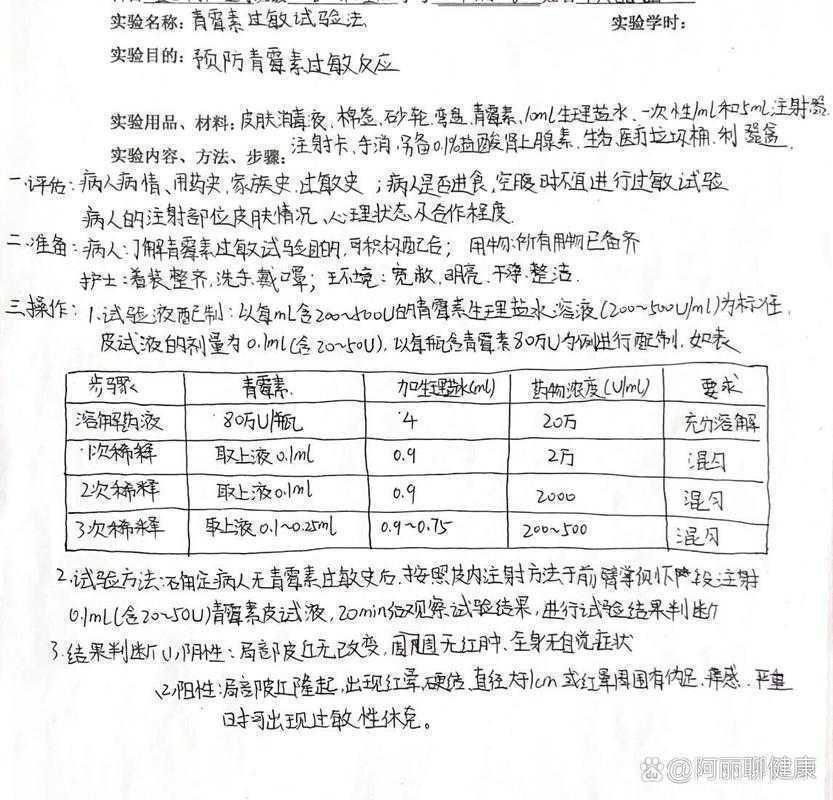 实验名称：青霉素过敏试验法 实验学时：
实验目的：预防青霉素过敏反应
实验用品、材料：皮肤消毒液、棉签、砂轮、弯盘、青霉素、10ml生理盐水、一次性1ml和5ml注射器
实验内容、方法、步骤：注射卡、手消、另备0.1%盐酸肾上腺素、生活、医疗垃圾桶、利器盒
一.评估：病人病情、用药史、家族史、过敏史；病人是否进食，空腹时不宜进行过敏试验
病人的注射部位皮肤情况、心理状态及合作程度.
二.准备：病人：了解青霉素过敏试验目的，可积极配合；用物：所有用物已备齐
护士：着装整齐、洗手、戴口罩；环境：宽敞、明亮、干净、整洁.
三.操作：1.试验液配制：以每mL含200~500U的青霉素生理盐水溶液(200~500U/ml)为标准.
皮试液的剂量为0.1ml(含20~50U)，以每瓶含青霉素80万U为例进行配制，如表
步骤 青霉素 加生理盐水(ml) 药物浓度(U/ml) 要求
溶解药液 80万U/瓶 4 20万 充分溶解
1次稀释 取上液0.1ml 0.9 2万 混匀
2次稀释 取上液0.1ml 0.9 2000 混匀
3次稀释 取上液0.1~0.25ml 0.9~0.75 200~500 混匀
2.试验方法：确定病人无青霉素过敏史后，按照皮内注射方法于前臂掌侧下段注射
0.1ml(含20~50U)青霉素皮试液，20min后观察试验结果，进行试验结果判断
3.结果判断 (1)阴性：局部皮丘无改变，周围无红肿、全身无自觉症状
(2)阳性：局部皮丘隆起，出现红晕、硬结、直径大于1cm 或红晕周围有伪足、痒感、严重
时可出现过敏性休克。
@阿丽聊健康